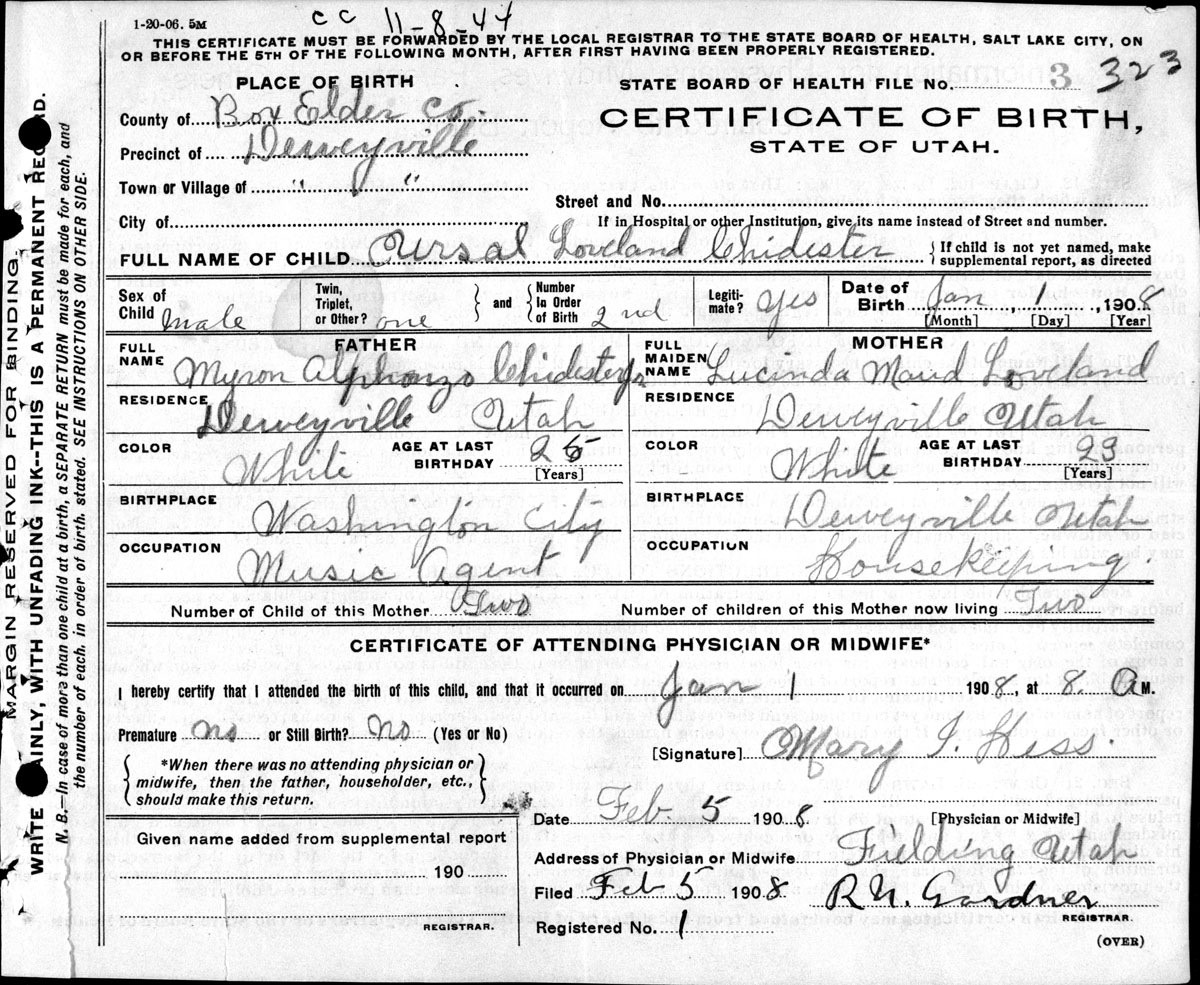 1-20-06. 5M
CC 11-8-44
THIS CERTIFICATE MUST BE FORWARDED BY THE LOCAL REGISTRAR TO THE STATE BOARD OF HEALTH, SALT LAKE CITY, ON
OR BEFORE THE 5TH OF THE FOLLOWING MONTH, AFTER FIRST HAVING BEEN PROPERLY REGISTERED.
PLACE OF BIRTH
STATE BOARD OF HEALTH FILE NO. 3 323
County of Box Elder Co.
CERTIFICATE OF BIRTH,
Precinct of Deweyville
STATE OF UTAH.
Town or Village of " "
Street and No.
City of
If in Hospital or other Institution, give its name instead of Street and number.
FULL NAME OF CHILD Ursal Loveland Chidester { If child is not yet named, make
supplemental report, as directed
Sex of Child male
Twin, Triplet, or Other? one
and
Number In Order of Birth 2nd
Legitimate? yes
Date of Birth Jan, 1, 1908
[Month] [Day] [Year]
FATHER
FULL NAME Myron Alphonzo Chidester Jr
RESIDENCE Deweyville Utah
COLOR White
AGE AT LAST BIRTHDAY 25 [Years]
BIRTHPLACE Washington City
OCCUPATION Music Agent
MOTHER
FULL MAIDEN NAME Lucinda Maud Loveland
RESIDENCE Deweyville Utah
COLOR White
AGE AT LAST BIRTHDAY 29 [Years]
BIRTHPLACE Deweyville Utah
OCCUPATION Housekeeping
Number of Child of this Mother Two
Number of children of this Mother now living Two
CERTIFICATE OF ATTENDING PHYSICIAN OR MIDWIFE*
I hereby certify that I attended the birth of this child, and that it occurred on Jan 1 1908, at 8. A M.
Premature no or Still Birth? No (Yes or No)
[Signature] Mary I. Hess.
*When there was no attending physician or
midwife, then the father, householder, etc.,
should make this return.
Date Feb 5 1908.
[Physician or Midwife]
Given name added from supplemental report
190
REGISTRAR.
Address of Physician or Midwife Fielding Utah
Filed Feb 5 1908 R.N. Gardner
REGISTRAR.
Registered No. 1
(OVER)
MARGIN RESERVED FOR BINDING.
WRITE PLAINLY, WITH UNFADING INK---THIS IS A PERMANENT RECORD.
N. B.—In case of more than one child at a birth, a SEPARATE RETURN must be made for each, and
the number of each, in order of birth, stated. SEE INSTRUCTIONS ON OTHER SIDE.